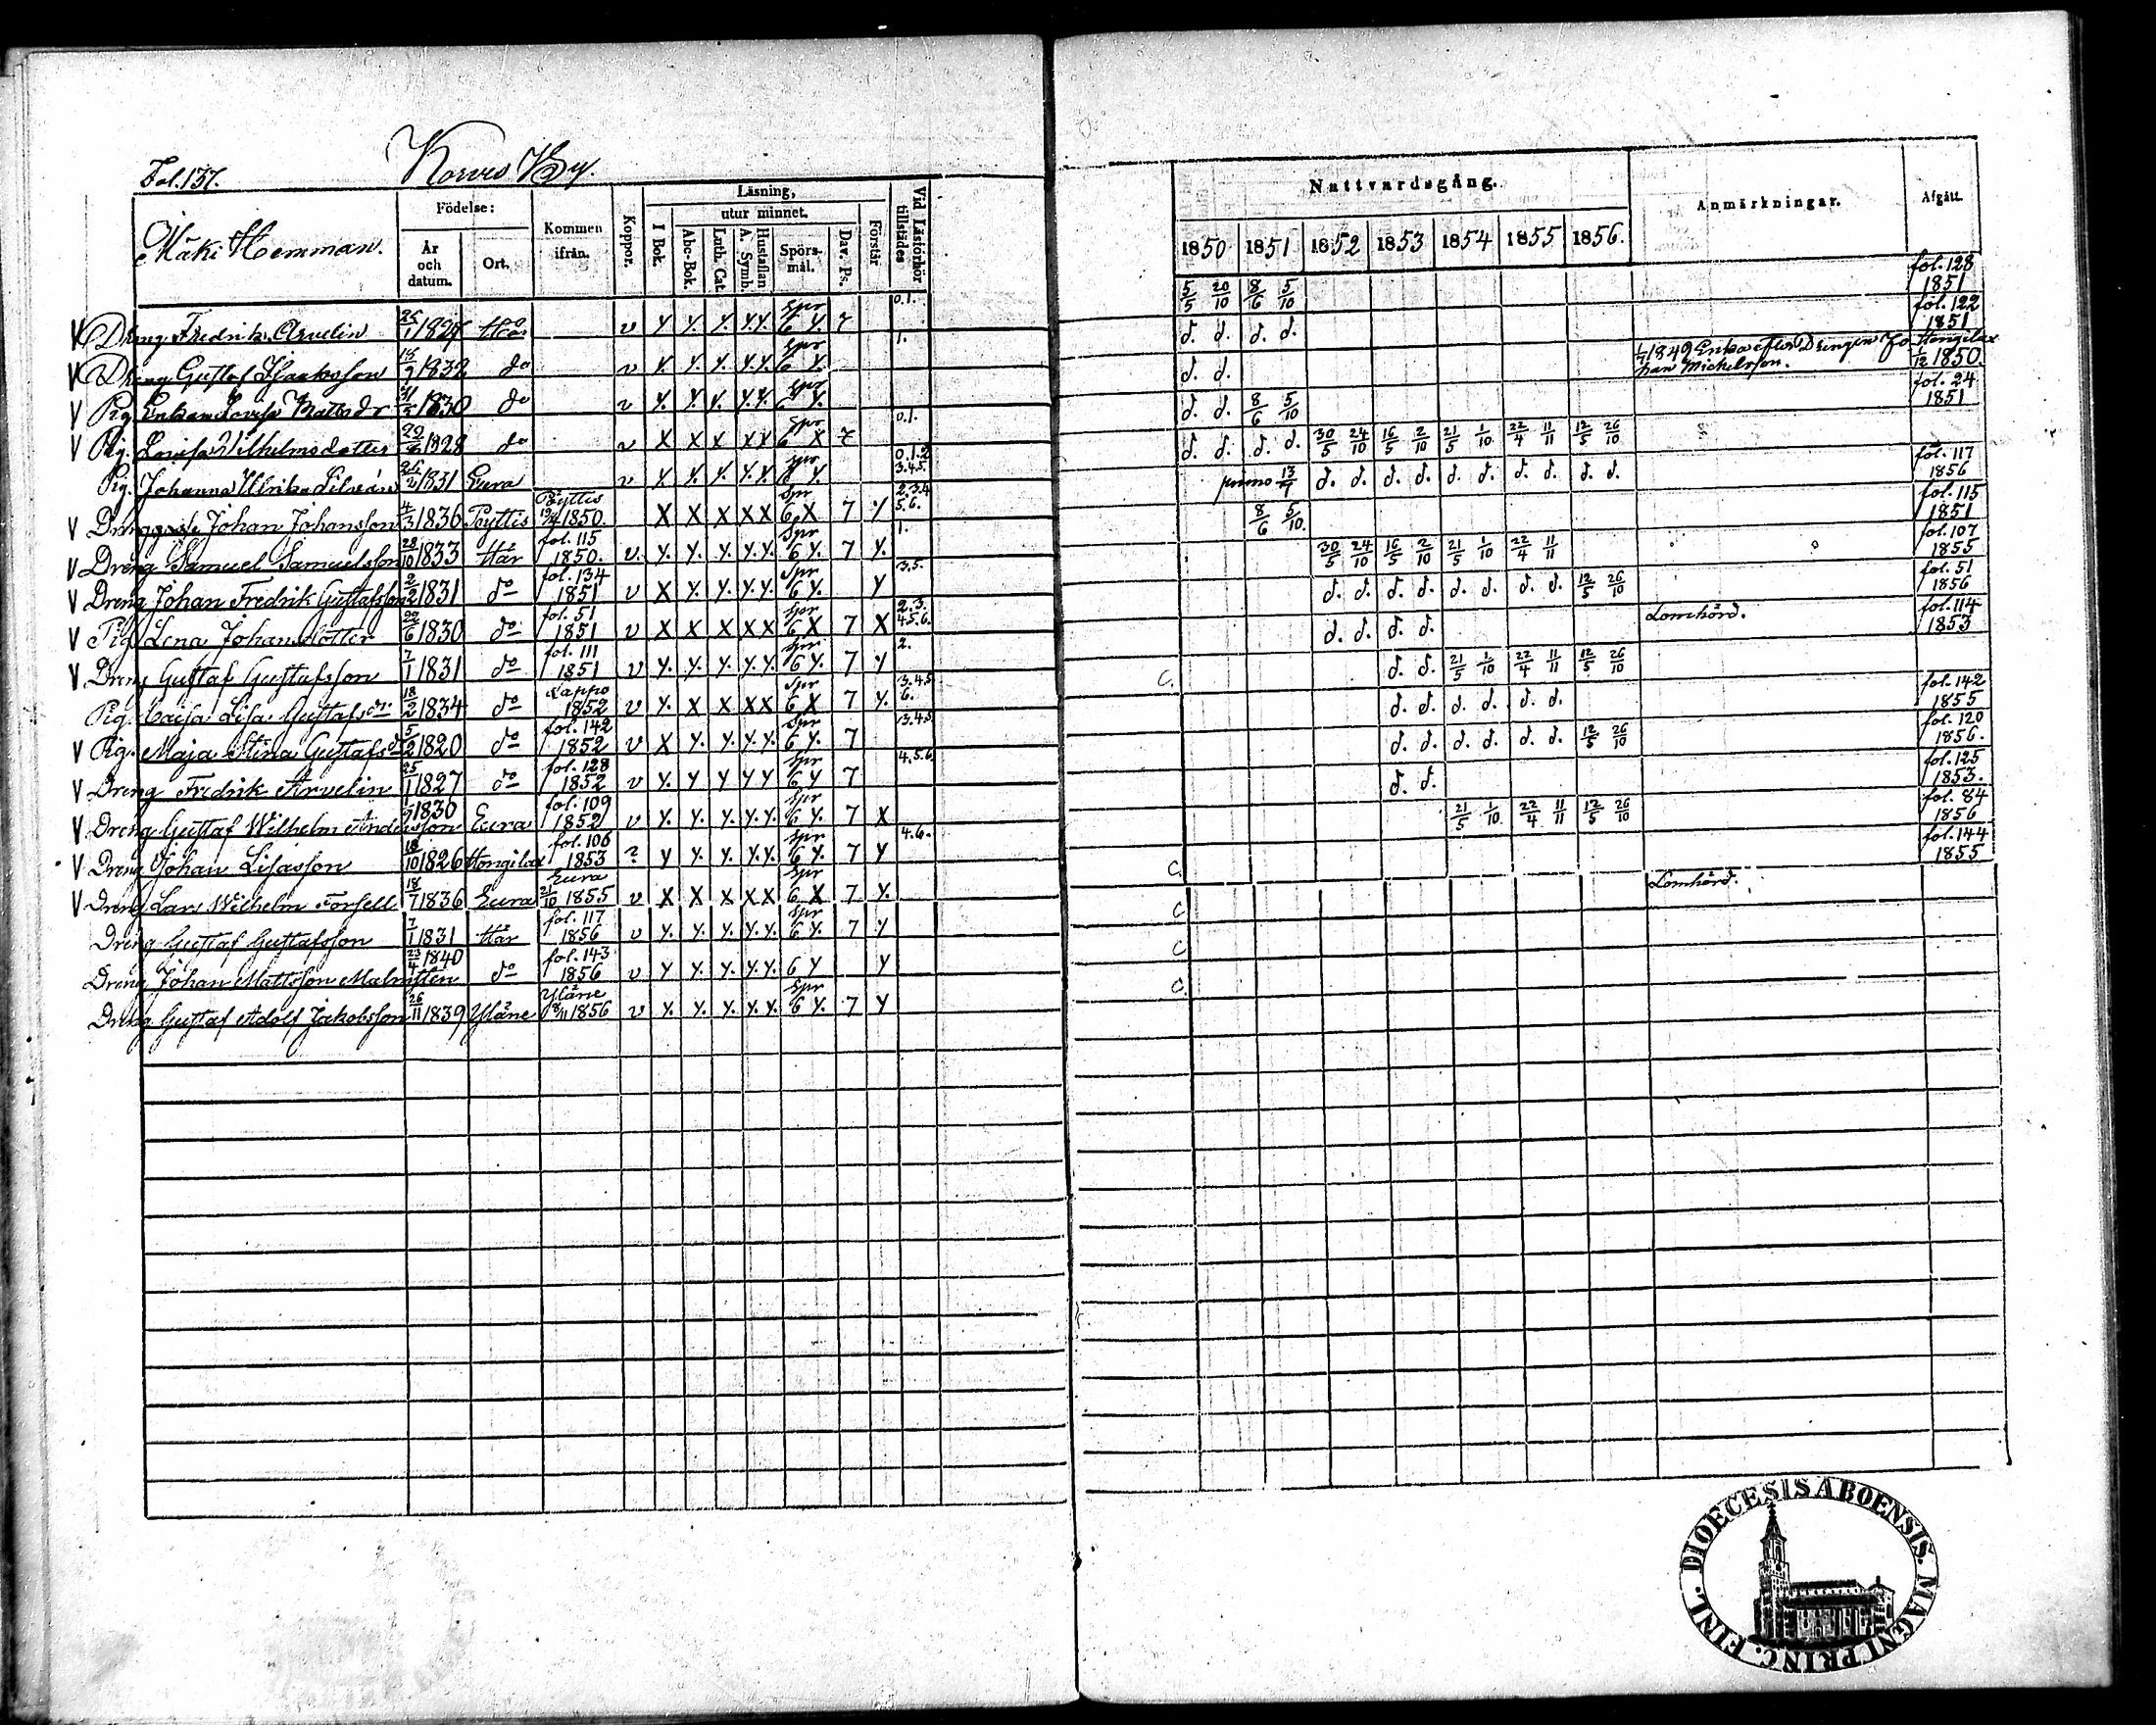 Fol. 137. By.
Mäki Hemman.
Födelse:
År och datum.
Ort.
Kommen ifrån.
Koppor.
Läsning,
I Bok.
utur minnet.
Abc-Bok.
Luth. Cat.
A. Symb.
Hustaflan
Spörsmål.
Dav. Ps.
Förstår
Vid Läsförhör tillstädes
Nattvardsgång.
1850 1851 1852 1853 1854 1855 1856.
Anmärkningar.
Afgått.
Dreng Fredrik Arvelin 25/1 1827 Här v y. y. y. y.y. Spr 6 y. 7 0.1. 5/5 20/10 8/6 5/10 fol. 128 1851
Dreng Gustaf Isaaksson 18/9 1832 do v y. y. y. y.y. Spr 6 y. 1. d. d. d. d. fol. 122 1851
Pig. Enkan Lovisa Matsdr 1830 do v y. y. y. y.y. Spr 6 y. d. d. 1849 Enka efter Drengen Johan Michelsson. Hongilax 1/12 1850.
Pig. Lovisa Wilhelmsdotter 1828 do v X X X X X Spr 6 X 7 0.1. d. d. 8/6 5/10 fol. 24 1851
Pig. Johanna Ulrika 1831 Eura v y. y. y. y.y. Spr 6 y. 0.1.2 3.4.5. d. d. d. d. 30/5 24/10 16/5 2/10 21/5 1/10 22/4 11/11 12/5 26/10
Johan Johansson 4/3 1836 Pyttis Pyttis 1850. X X X X X Spr 6 X 7 y 2.3.4 5.6. primo 13/7 d. d. d. d. d. d. d. d. d. d. fol. 117 1856
Dreng Samuel Samuelsson 28/10 1833 Här fol. 115 1850. v. y. y. y. y.y. Spr 6 y. 7 y. 1. 8/6 5/10. fol. 115 1851
Dreng Johan Fredrik Gustafsson 2/2 1831 do fol. 134 1851 v X y. y. y.y. Spr 6 y. y 3.5. 30/5 24/10 16/5 2/10 21/5 1/10 22/4 11/11 fol. 107 1855
Pig. Lena Johansdotter 1830 do fol. 51 1851 v X X X X X Spr 6 X 7 X 2.3. 4.5.6. d. d. d. d. d. d. d. d. 12/5 26/10 fol. 51 1856
Dreng Gustaf Gustafsson 7/1 1831 do fol. 111 1851 v y. y. y. y.y. Spr 6 y. 7 y 2. d. d. d. d. Lomhörd. fol. 114 1853
Pig. Caisa Lisa Gustafsdr 18/2 1834 do Lappo 1852 v y. X X X X Spr 6 X 7 y. 3.4.5 6. C. d. d. 21/5 1/10 22/4 11/11 12/5 26/10
Pig. Maja Stina Gustafsd 5/2 1820 do fol. 142 1852 v X y. y. y.y. Spr 6 y. 7 3.4.5 d. d. d. d. d. d. fol. 142 1855
Dreng Fredrik Arvelin 25/1 1827 do fol. 128 1852 v y. y y y y Spr 6 y 7 4.5.6 d. d. d. d. d. d. 12/5 26/10 fol. 120 1856.
Dreng Gustaf Wilhelm Andersson 1830 Eura fol. 109 1852 v y. y. y. y.y. Spr 6 y. 7 X d. d. fol. 125 1853.
Dreng Johan Lisasson 18/10 1826 Hongilax fol. 106 1853 ? y y. y. y.y. Spr 6 y. 7 y 4.6. 21/5 1/10 22/4 11/11 12/5 26/10 fol. 84 1856
Dreng Lars Wilhelm Forsell 18/7 1836 Eura Eura 21/10 1855 v X X X X X Spr 6 X 7 y. C. fol. 144 1855
Dreng Gustaf Gustafsson 7/1 1831 Här fol. 117 1856 v y. y. y. y.y. Spr 6 y. 7 y C Lomhörd.
Dreng Johan Mattsson Malmsten 23/4 1840 do fol. 143 1856 v y y. y. y.y. 6 y y C
Dreng Gustaf Adolf Jakobsson 26/11 1839 Yläne Yläne 8/11 1856 v y. y. y. y.y. Spr 6 y. 7 y C.
DIOECESIS ABOENSIS. MAGNI PRINC. FINL.